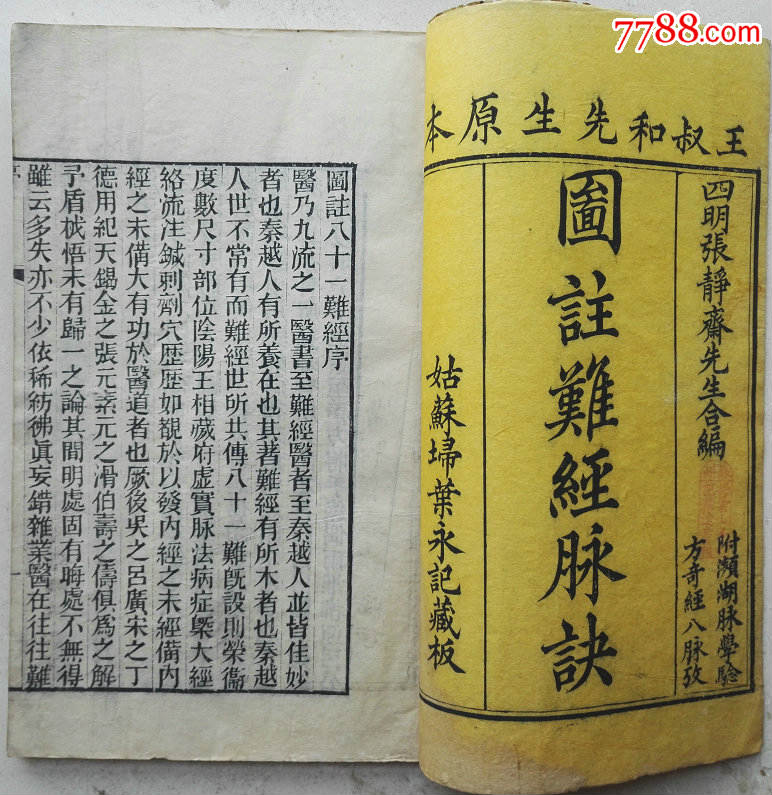 7788.com
王叔和先生原本
四明張靜齋先生合編
附瀕湖脉學驗
方奇經八脉攷
圖註難經脉訣
姑蘇埽葉永記藏板
圖註八十一難經序
醫乃九流之一醫書至難經醫者至秦越人並皆佳妙
者也秦越人有所養在也其著難經有所木者也秦越
人世不常有而難經世所共傳八十一難旣設則榮衞
度數尺寸部位陰陽王相藏府虛實脉法病症槩大經
絡流注鍼剌劑穴歴歴如覩於以發內經之未經備內
經之未備大有功於醫道者也厥後吳之呂廣宋之丁
德用紀天錫金之張元素元之滑伯壽之儔俱爲之解
予盾棫悟未有歸一之論其間明處固有晦處不無得
雖云多失亦不少依稀紡彿眞妄錯雜業醫在往往難
序
一